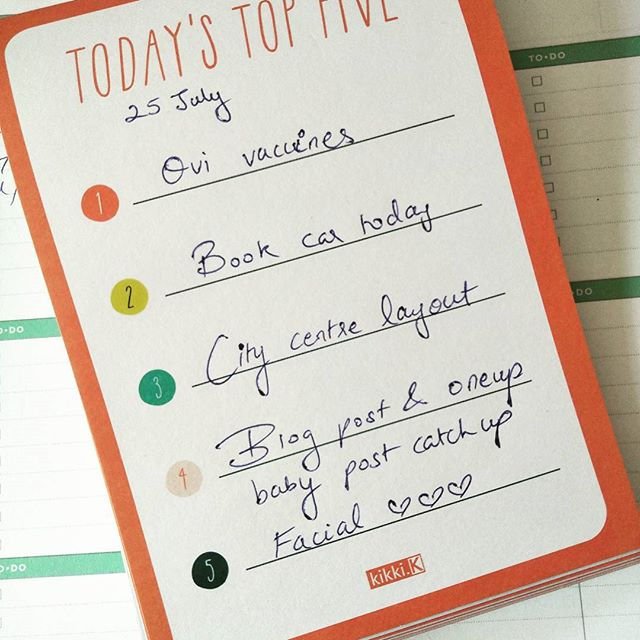 TODAY'S TOP FIVE
25 July
1 Ovi vaccines
2 Book car today
3 City centre layout
4 Blog post & oneup
baby post catch up
5 Facial ♡♡♡
kikki.K
TO•DO
TO•DO
O•DO
O•DO